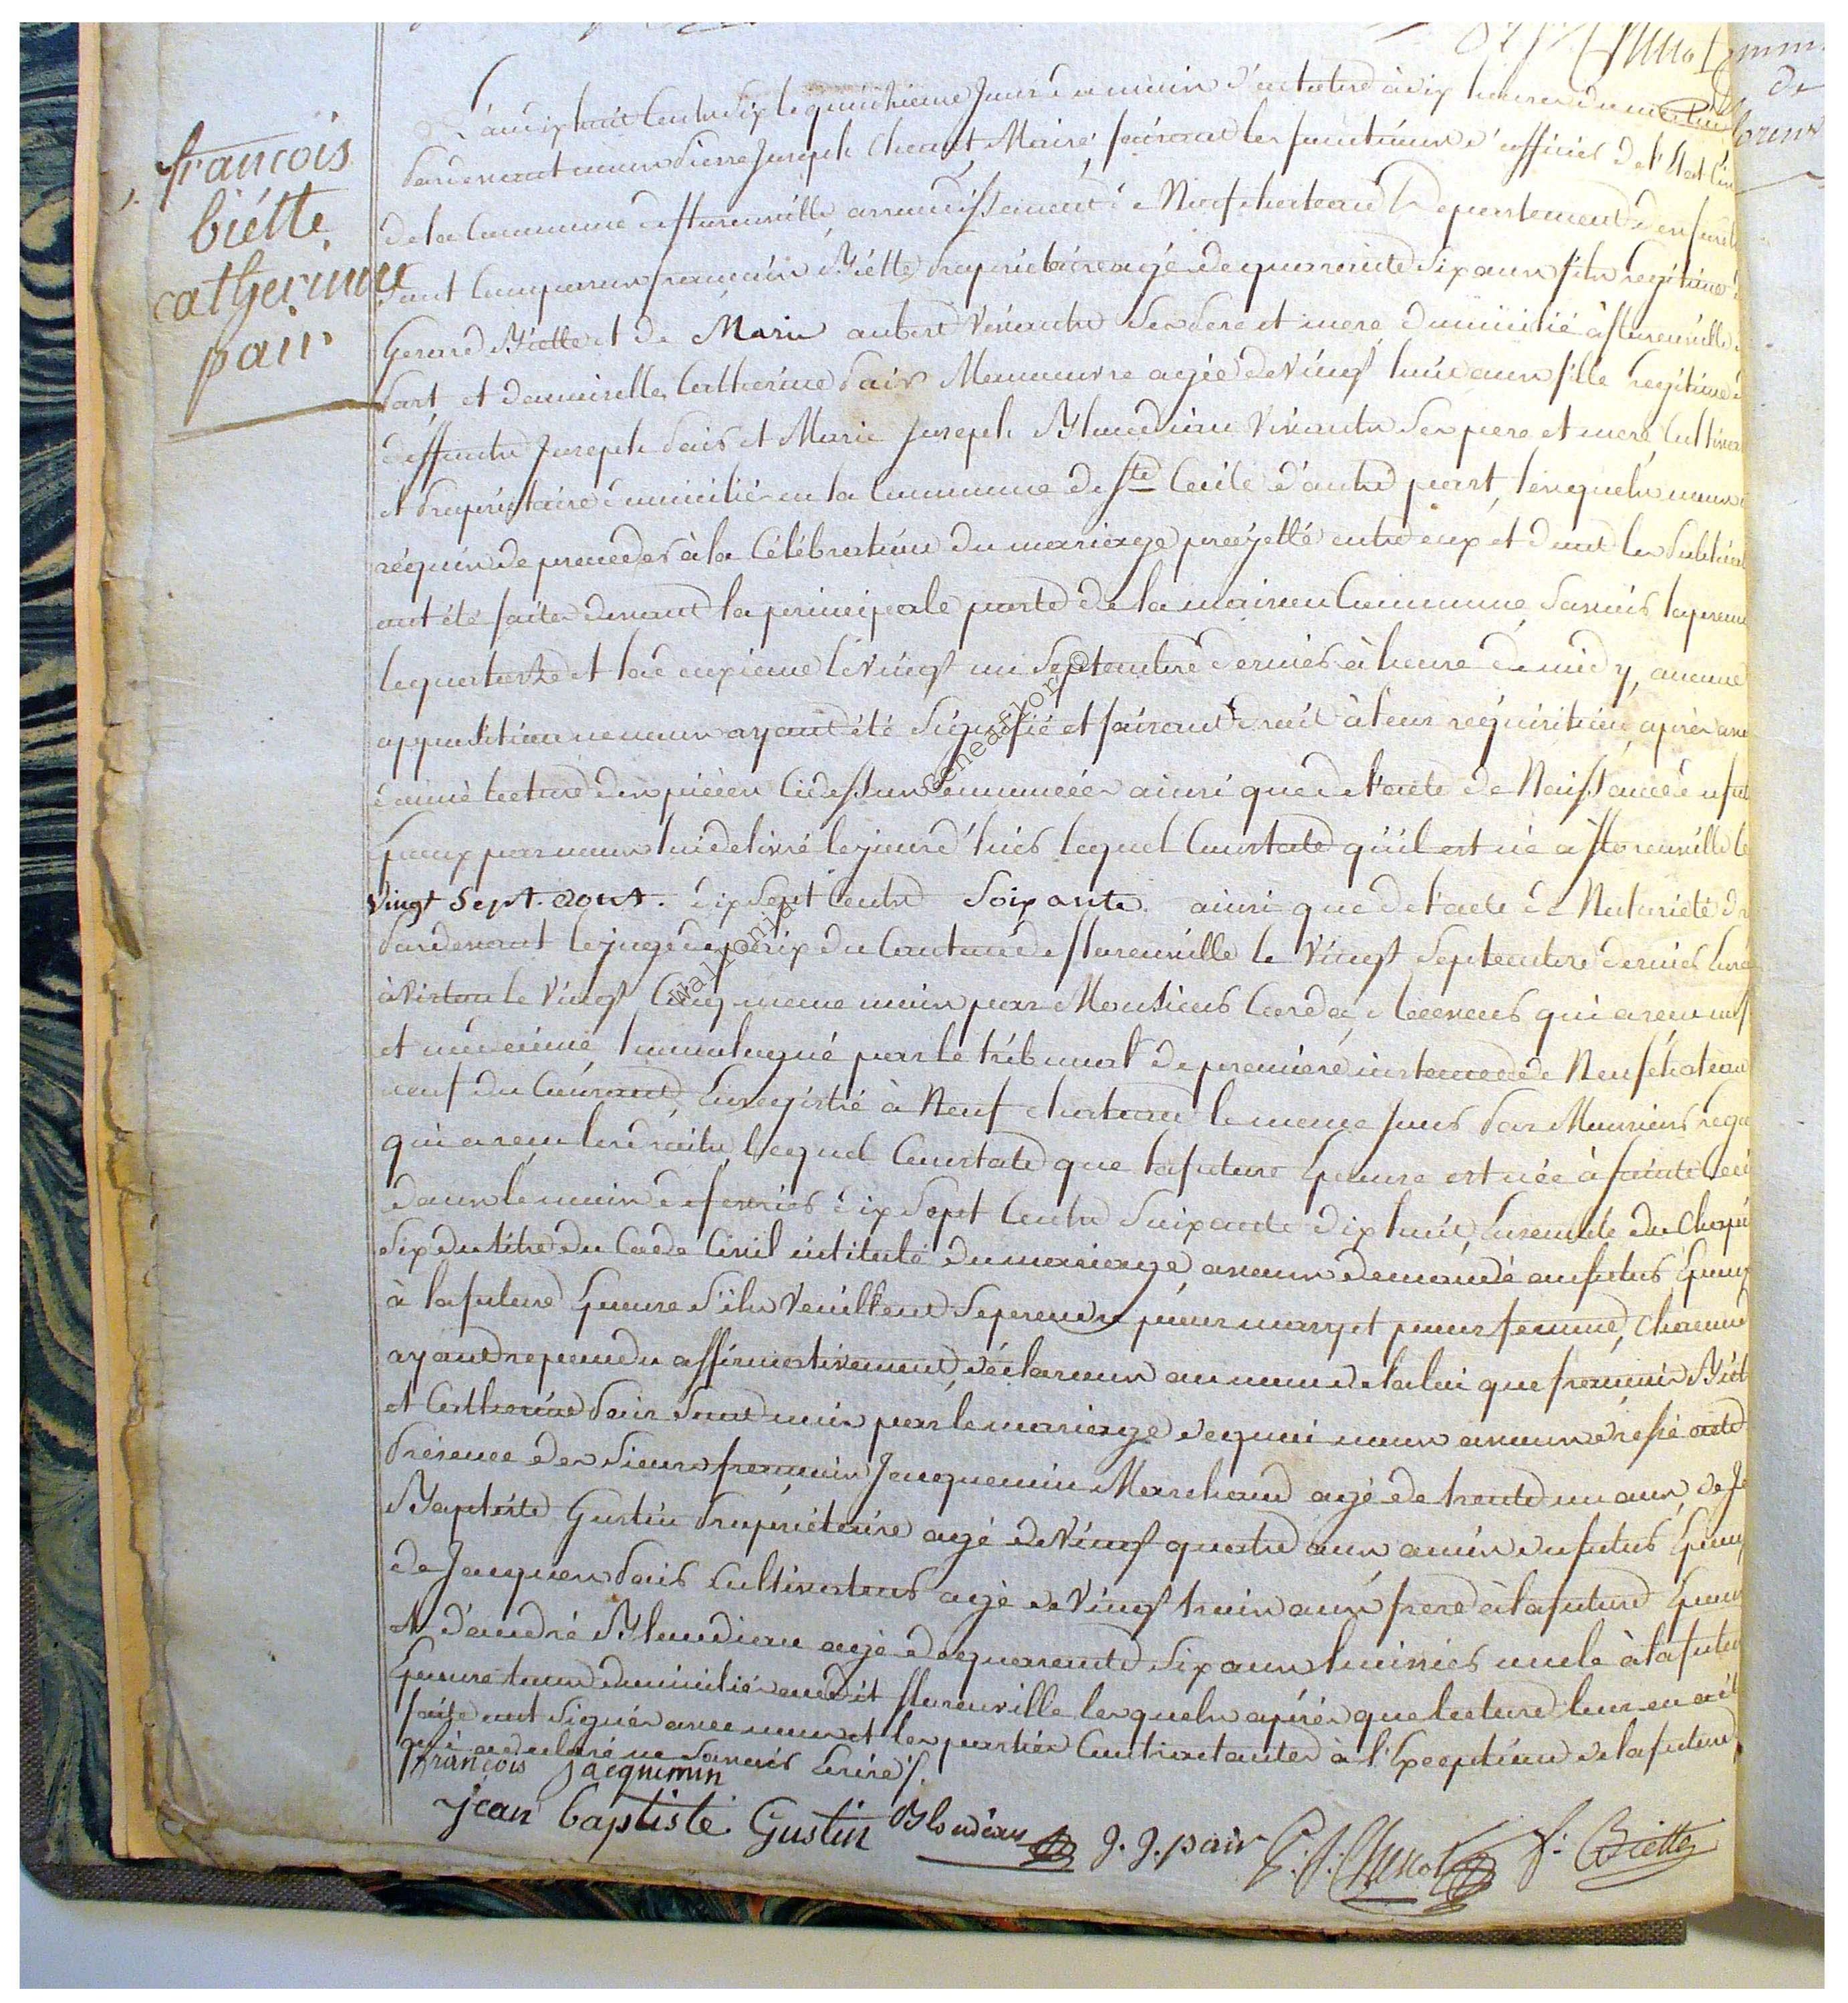 françois
biétte
catherinne
pair
L'an dix huit Cents dix le quinzieme Jour du mois d'octobre à dix heures du matin
Pardevant nous Pierre Joseph Chenot Maire faisant les fonctions d'officier de l'Etat Civ
de la Commune de florenville arrondissement de Neufchateau Departement des forêts
Sont Comparus francois Biétte Proprietaire agé de quarante Six ans fils legitime d
Gerard Biette et de Marie aubert vivants Ses Pere et mere domicilié à florenville d
Part et demoiselle Catherine Pair Manoeuvre agée de Vingt huit ans fille legitime d
deffunts Joseph Pair et Marie Joseph Blondiau vivants Ses pere et mere Cultivat
et Propriétaire domiciliés en la Commune de Ste Cecile d'autre part, lesquels nous
requis de proceder à la Célébration du mariage projetté entre eux et dont les Publicat
ont été faites devant la principale porte de la maison Commune, Savoir la premi
le quatorze et la deuxieme le Vingt un Septembre dernier à heure de midy, aucune
opposition ne nous ayant été Signifié et faisant droit à leur réquisition, après avoir
donné lecture des pièces Cidessus enoncées ainsi que de l'acte de Naissance du futur
Epoux par nous lui delivré le jourd'hui lequel Constate qu'il est né à florenville le
vingt sept. aout. dix Sept Cents Soixante. ainsi que de l'acte de Notoriété d
Pardevant le juge de paix du Canton de florenville le Vingt Septembre dernier Enré
à Virton le Vingt Cinq meme mois par Monsieur receveur qui a recu
et homologué par le tribunal de premiere instance de Neufchateau
neuf du Courant, Enregistré à Neuf chateau le meme Jour Par Monsieur
qui a reçu les droits, lequel Constate que la future Epouse est née à Sainte Ceci
dans le mois de fevrier dix Sept Cents Soixante dix huit, Ensemble du Chapit
Six du titre du Code Civil intitulé du mariage, avons demandé au futur Epoux
à la future Epouse S'ils veuillent Se prendre pour mary et pour femme, Chacun
ayant repondu affirmativement, déclarons au nom de la loi que francois Biet
et Catherine Pair Sont unis par le mariage de quoi nous avons dressé acte
Présence des Sieurs francois Jacquemin Marchand agé de trente un ans, de Je
Baptiste Gustin Propriétaire agé de Vingt quatre ans amis du futur Epoux
de Jacques Pair Cultivateur agé de Vingt trois ans frere à la future Epous
et d'andré Blondiau agé de quarante Six ans huissier oncle à la futur
Epouse tous domiciliés audit florenville lesquels après que lecture leur en a ét
faite ont Signés avec nous et les parties Contractantes à l'Exception de la future
qui a declaré ne Savoir Ecrire
françois Jacquemin
jean baptiste Gustin Blondiau J. J. pair P. J. Chenot f. Biette
wallonia Geneaflor ©